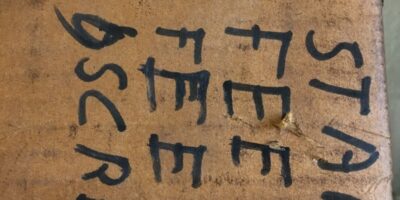 STA
FEE
FEE
&SCR